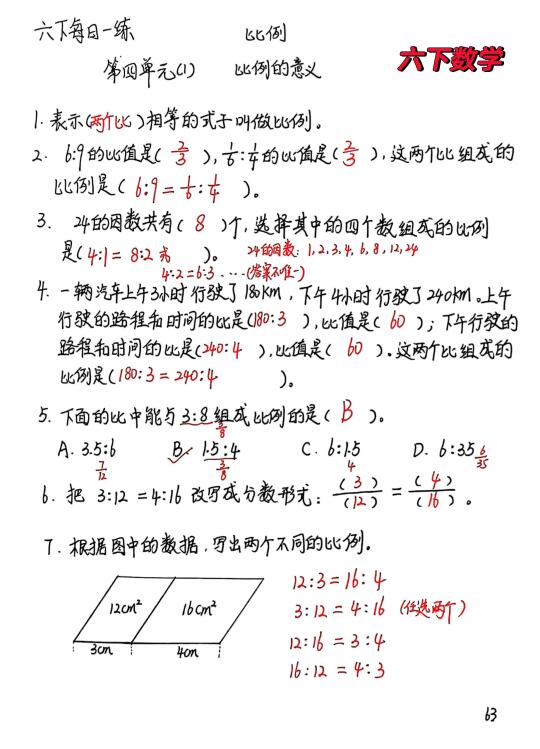 六下每日一练 比例
六下数学
第四单元(1) 比例的意义
1. 表示(两个比)相等的式子叫做比例。
2. 6:9的比值是( 2/3 ), 1/6:1/4的比值是( 2/3 ), 这两个比组成的
比例是( 6:9 = 1/6:1/4 )。
3. 24的因数共有( 8 )个, 选择其中的四个数组成的比例
是( 4:1 = 8:2 或 )。 24的因数: 1, 2, 3, 4, 6, 8, 12, 24
4:2=6:3 ... (答案不唯一)
4. 一辆汽车上午3小时行驶了180km, 下午4小时行驶了240km。上午
行驶的路程和时间的比是(180:3 ), 比值是( 60 ); 下午行驶的
路程和时间的比是(240:4 ), 比值是( 60 )。这两个比组成的
比例是( 180:3 = 240:4 )。
5. 下面的比中能与3:8组成比例的是( B )。
3/8
A. 3.5:6 B. 1.5:4 C. 6:1.5 D. 6:35 6/35
7/12 3/8 4
6. 把 3:12 =4:16 改写成分数形式: (3)/(12) = (4)/(16) 。
7. 根据图中的数据, 写出两个不同的比例。
12cm² 16cm²
3cm 4cm
12:3=16:4
3:12=4:16 (任选两个)
12:16 = 3:4
16:12 = 4:3
63